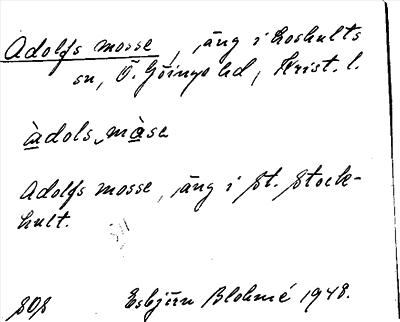 Adolfs mosse, äng i Loshults
sn, Ö. Göinge hd, Krist. l.
àdols màse
Adolfs mosse, äng i St. Stock-
hult.
Esbjörn Blohmé 1948.